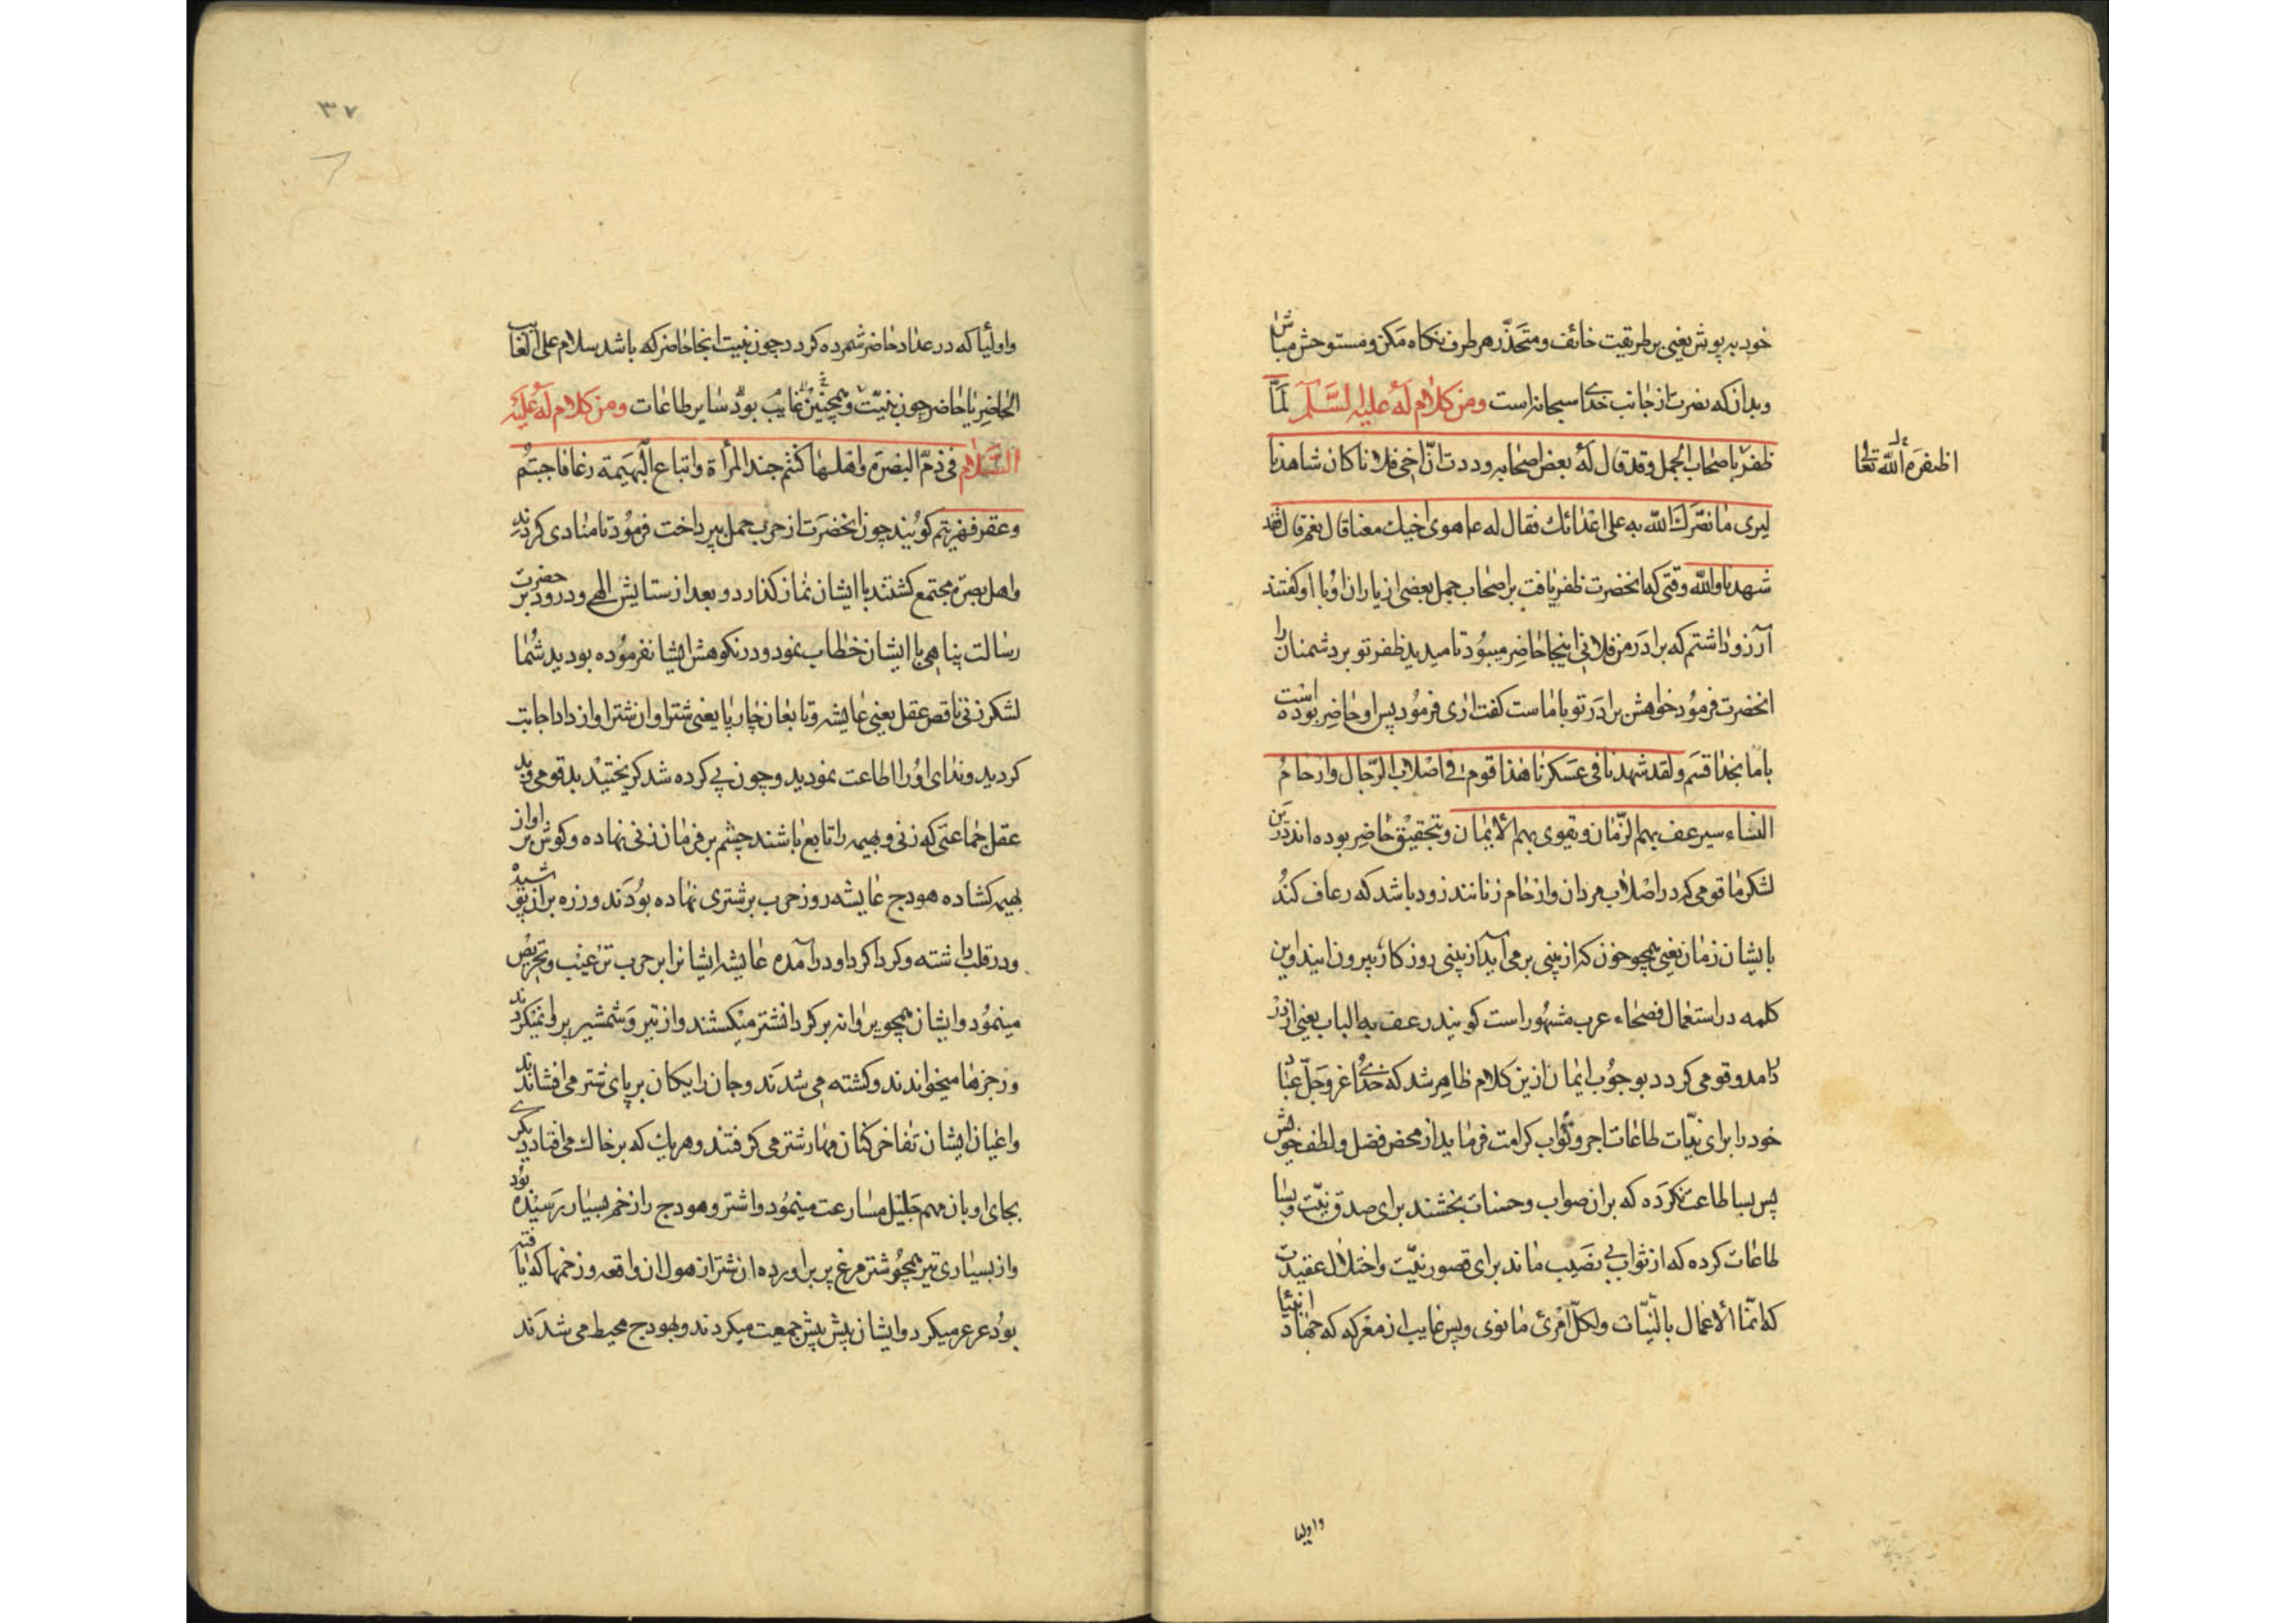 خود به پوش یعنی بر طریقت خائف و متحذر هر طرف نکاه مکن و مستوحش مباش
و بدان که نصرت از جانب خدای سبحانه است ومن کلام له علیه السلام لما
ظفر باصحاب الجمل وقد قال له بعض اصحابه وددت ان اخی فلانا کان شاهدنا
اظفره الله تعالی
لیری ما نصرك الله به علی اعدائك فقال له ع اهوی اخیك معنا قال نعم قال فقد
شهدنا والله وقتی که انحضرت ظفر یافت بر اصحاب جمل بعضی از یاران او با او کفتند
آرزو داشتم که برادر من فلانی اینجا حاضر میبود تا میدید ظفر تو بر دشمنان را
انحضرت فرمود خواهش برادر تو با ما است کفت اری فرمود پس او حاضر بوده است
با ما بخدا قسم ولقد شهدنا فی عسکرنا هذا قوم فی اصلاب الرجال وارحام
النساء سیرعف بهم الزمان ویقوی بهم الایمان وبتحقیق حاضر بوده اند درین
لشکر ما قومی که در اصلاب مردان وارحام زنانند زود باشد که رعاف کند
بایشان زمان یعنی همچو خون که از بینی بر می آید از بینی روزکار بیرون ایند واین
کلمه در استعمال فصحاء عرب مشهور است کویند رعف به الباب یعنی از در
در امد وقومی کردد بوجوب ایمان ازین کلام ظاهر شد که خدای عز وجل عباد
خود را برای نیات طاعات اجر وثواب کرامت فرماید از محض فضل ولطف خویش
پس بسا طاعت نکرده که بر ان صواب وحسنات بخشند برای صدق نیت وبسا
طاعات کرده که از ثواب بی نصیب ماند برای قصور نیت واختلال عقیدت
که انما الاعمال بالنیات ولکل امرئ ما نوی وپس غایب از معرکه که جهاد انبیا
واولیا
۳۷
واولیا که در عداد حاضر شمرده کردد چون بنیت انجا حاضر که باشد سلام علی الغایب
الحاضر یا حاضر چون بنیت وهمچنین غایب بود سایر طاعات ومن کلام له علیه
السلام فی ذم البصرة واهلها کنتم جند المرأة واتباع البهیمة رغا فاجبتم
وعقر فهربتم کویند چون انحضرت از حرب جمل بپرداخت فرمود تا منادی کردند
واهل بصره مجتمع کشتند با ایشان نماز کذارد وبعد از ستایش الهی ودرود بر حضرت
رسالت پناهی با ایشان خطاب نمود ودر نکوهش ایشان فرموده بودید شما
لشکر زنی ناقص عقل یعنی عایشه وتابعان چارپا یعنی شتر او ان شتر اواز داد اجابت
کردید وندای او را اطاعت نمودید وچون پی کرده شد کریختید بد قومی
عقل جماعتی که زنی وبهیمه را تابع باشند چشم بر فرمان زنی نهاده وکوش بر اواز
بهیمه کشاده هودج عایشه روز حرب بر شتری نهاده بودند وزره بر ان پوشیده
ودر قلب داشته وکرداکرد او در آمده عایشه ایشانرا بر حرب ترغیب وتحریض
مینمود وایشان همچو پروانه بر کرد ان شتر میکشتند واز تیر وشمشیر پروا نمیکردند
ورجزها میخواندند وکشته می شدند وجان رایکان بر پای شتر می افشاندند
واعیان ایشان تفاخر کنان مهار شتر می کرفتند وهریك که بر خاك می افتاد دیکری
بجای او بان مهم جلیل مسارعت مینمود واشتر وهودج را زخم بسیار رسیده بود
واز بسیاری تیر همچو شتر مرغ پر بر اورده ان شتر از هول ان واقعه وزخمها که یافته
بود عرعر میکرد وایشان پیش پیش جمعیت میکردند وبهودج محیط می شدند